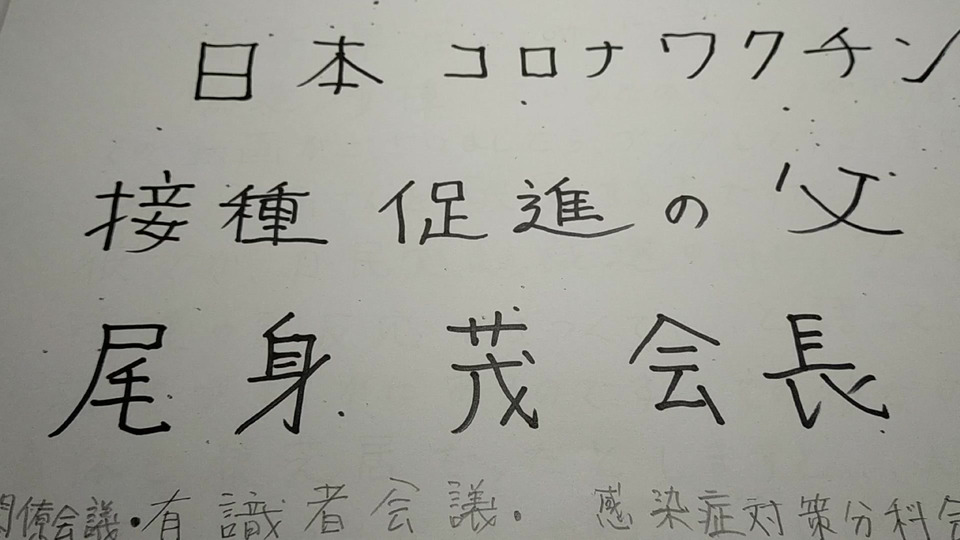 日本 コロナワクチン
接種 促進の父
尾身 茂 会長
閣僚会議・有識者会議. 感染症対策分科会